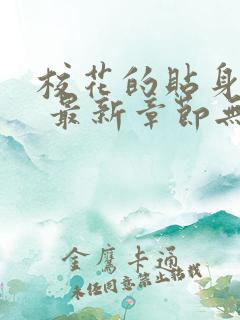 校花的貼身
最新章節無
金鷹卡通
未经同意禁止转载